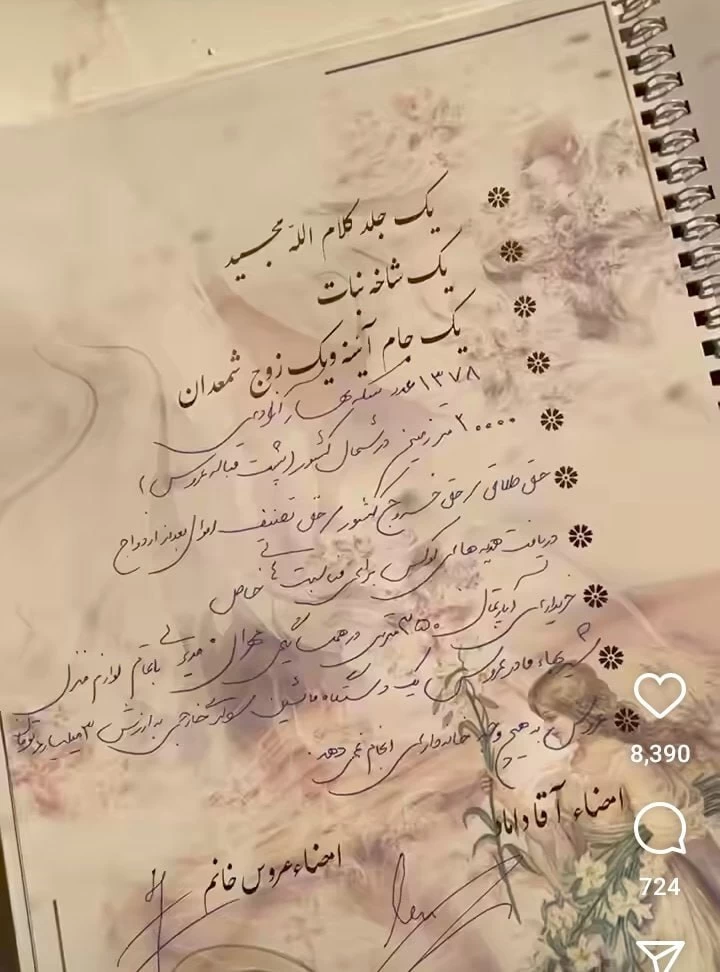 یک جلد کلام الله مجید
یک شاخه نبات
یک جام آینه ویک زوج شمعدان
۱۳۷۸ عدد سکه بهار آزادی
۲۰۰۰۰ متر زمین در شمال کشور (پشت قباله عروس)
حق طلاق / حق خروج کشور / حق تصنیف اموال بعد از ازدواج
دریافت هدیه های لوکس برای مناسبت های خاص
خریداری آپارتمان ۳۵۰ متری در همسایگی با تمام لوازم منزل
شیربهاء مادر عروس یک دستگاه ماشین خارجی به ارزش ۳ میلیارد تومان
عروس به هیچ وجه خانه داری انجام نمی دهد.
امضاء آقا داماد
امضاء عروس خانم
8,390
724